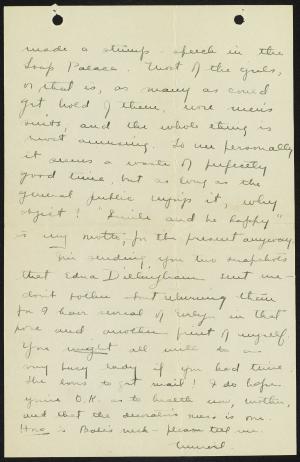 made a stump-speech in the
Soap Palace. Most of the girls,
or that is, as many as could
get hold of them, wore men's
suits, and the whole thing is
most amusing. To me personally
it seems a waste of perfectly
good time, but as long as the
general public enjoys it, why
object! "Smile and be happy"
is my motto, for the present anyway.
I'm sending you two snapshots
that Edna Dillingham sent me -
don't bother about returning them
for I have several of in that
pose and another print of myself.
You might all write to
my lady if you had time.
She loves to get mail! I do hope
you're O.K. as to health now, mother,
and that the is one
is neck - please tell me.
Muriel